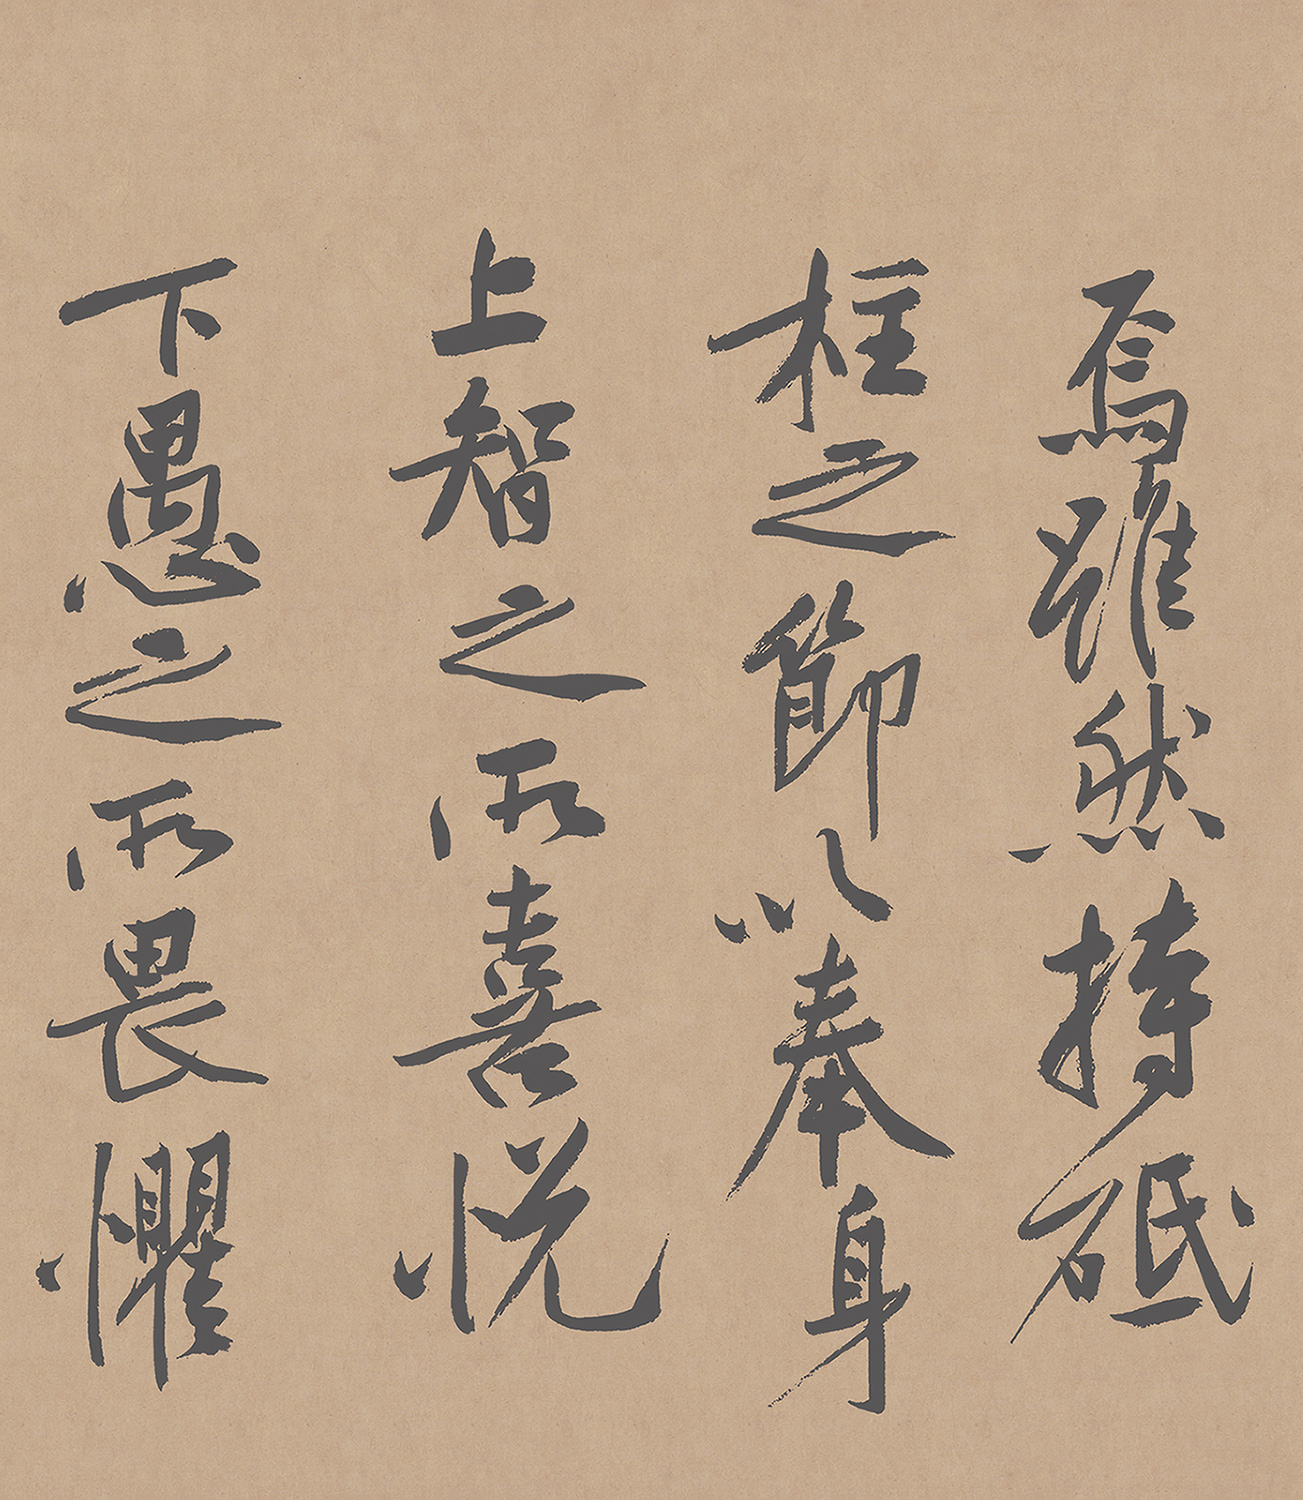 焉雖然持砥
柱之節以奉身
上智之所喜悅
下愚之所畏懼